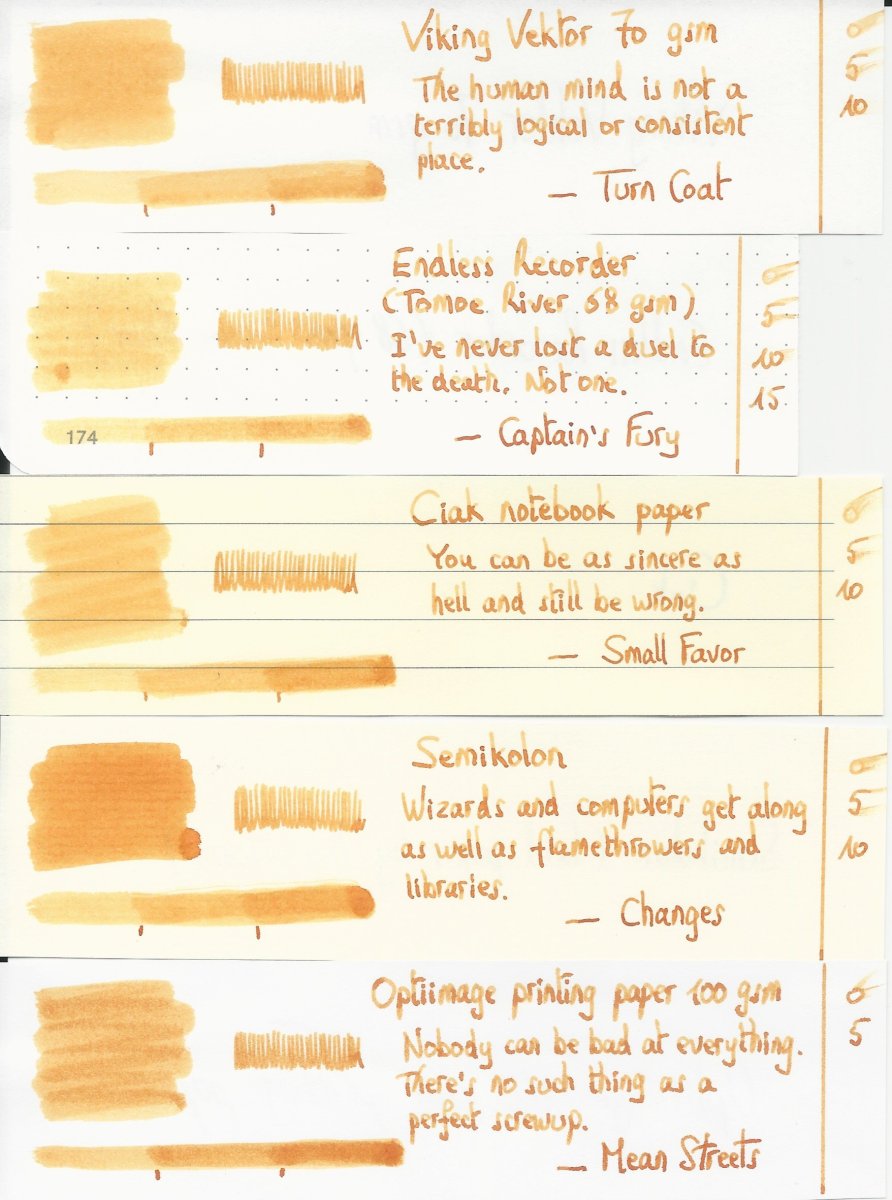 Viking Vektor 70 gsm
The human mind is not a
terribly logical or consistent
place.
— Turn Coat
0
5
10
Endless Recorder
(Tomoe River 68 gsm)
I've never lost a duel to
the death. Not one.
— Captain's Fury
174
0
5
10
15
Ciak notebook paper
You can be as sincere as
hell and still be wrong.
— Small Favor
0
5
10
Semikolon
Wizards and computers get along
as well as flamethrowers and
libraries.
— Changes
0
5
10
Optiimage printing paper 100 gsm
Nobody can be bad at everything.
There's no such thing as a
perfect screwup.
— Mean Streets
0
5